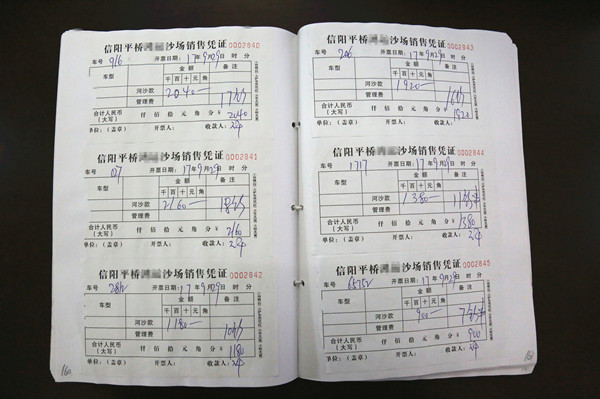 信阳平桥 沙场销售凭证 0002840
车号 916 开票日期: 17年9月29日 时 分
车型 金额 备注
千 百 十 元 角
河沙款 2040—
管理费 17
合计人民币(大写) 仟 佰 拾 元 角 分 ¥ 2040
单位:(盖章) 开票人: 收款人:
信阳平桥 沙场销售凭证 0002841
车号 017 开票日期: 17年9月29日 时 分
车型 金额 备注
千 百 十 元 角
河沙款 2160— 18
管理费
合计人民币(大写) 仟 佰 拾 元 角 分 ¥ 2160
单位:(盖章) 开票人: 收款人:
信阳平桥 沙场销售凭证 0002842
车号 286 开票日期: 17年9月29日 时 分
车型 金额 备注
千 百 十 元 角
河沙款 1180—
管理费
合计人民币(大写) 仟 佰 拾 元 角 分 ¥ 1180
单位:(盖章) 开票人: 收款人:
160
信阳平桥 沙场销售凭证 0002843
车号 206 开票日期: 17年9月29日 时 分
车型 金额 备注
千 百 十 元 角
河沙款 1920—
管理费 16
合计人民币(大写) 仟 佰 拾 元 角 分 ¥ 1920
单位:(盖章) 开票人: 收款人:
信阳平桥 沙场销售凭证 0002844
车号 1717 开票日期: 17年9月29日 时 分
车型 金额 备注
千 百 十 元 角
河沙款 1380— 11
管理费
合计人民币(大写) 仟 佰 拾 元 角 分 ¥ 1380
单位:(盖章) 开票人: 收款人:
信阳平桥 沙场销售凭证 0002845
车号 开票日期: 17年9月29日 时 分
车型 金额 备注
千 百 十 元 角
河沙款 900— 7
管理费
合计人民币(大写) 仟 佰 拾 元 角 分 ¥ 900
单位:(盖章) 开票人: 收款人: